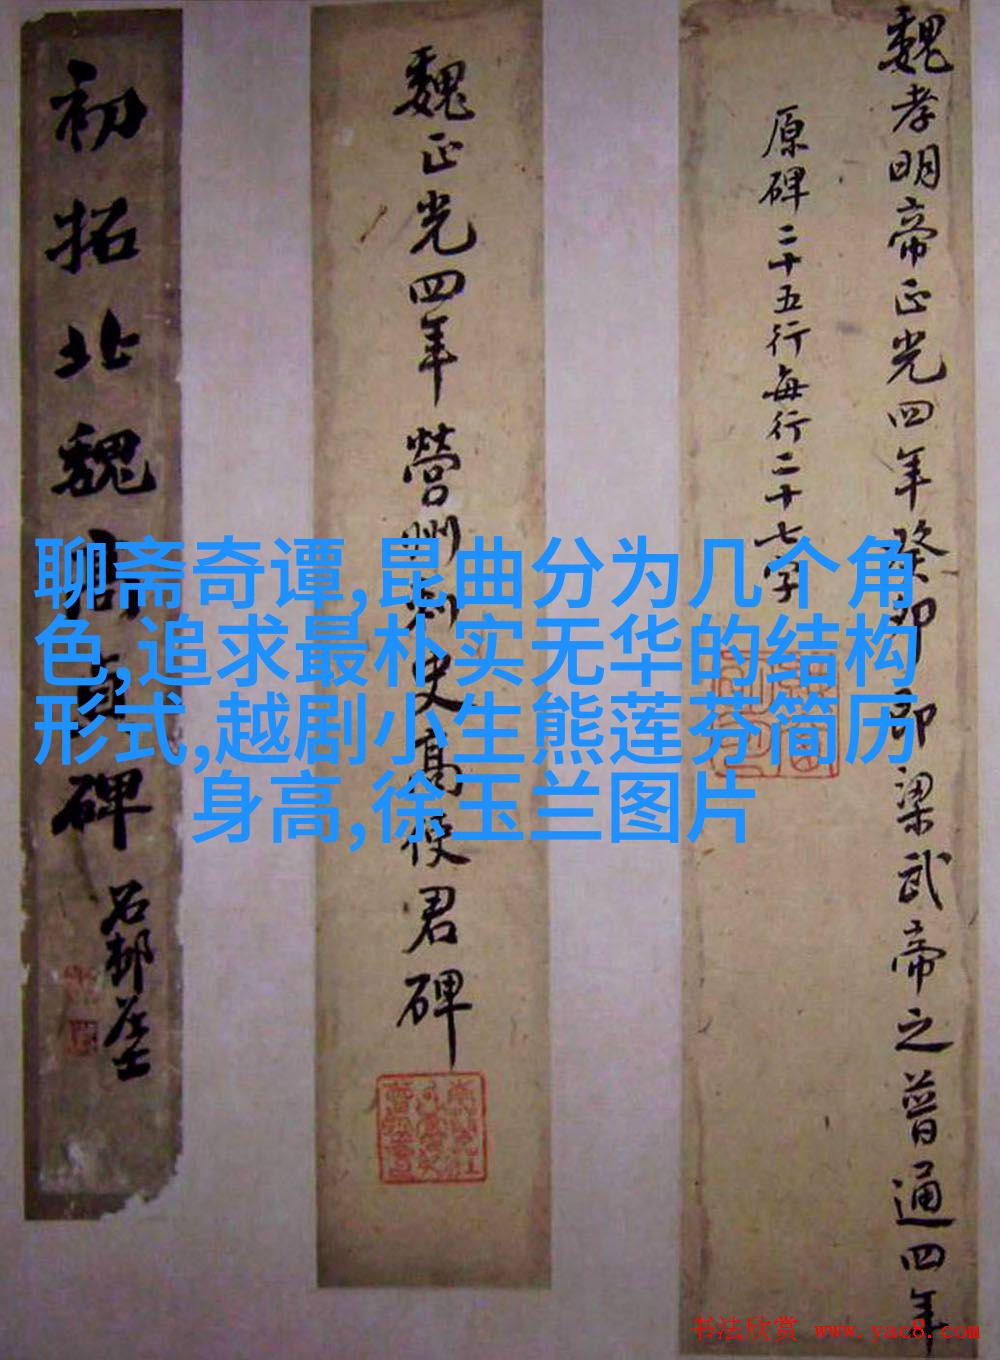 聊斋奇谭,昆曲分为几个角
色,追求最朴实无华的结构
形式,越剧小生熊莲芬简历
身高,徐玉兰图片
魏孝明帝正光四年癸卯即梁武帝之普通四年
原碑二十五行每行二十七字
魏正光四年營州刺史高使君碑
初拓北魏高貞碑
石邨
书法欣赏 www.yac8.com